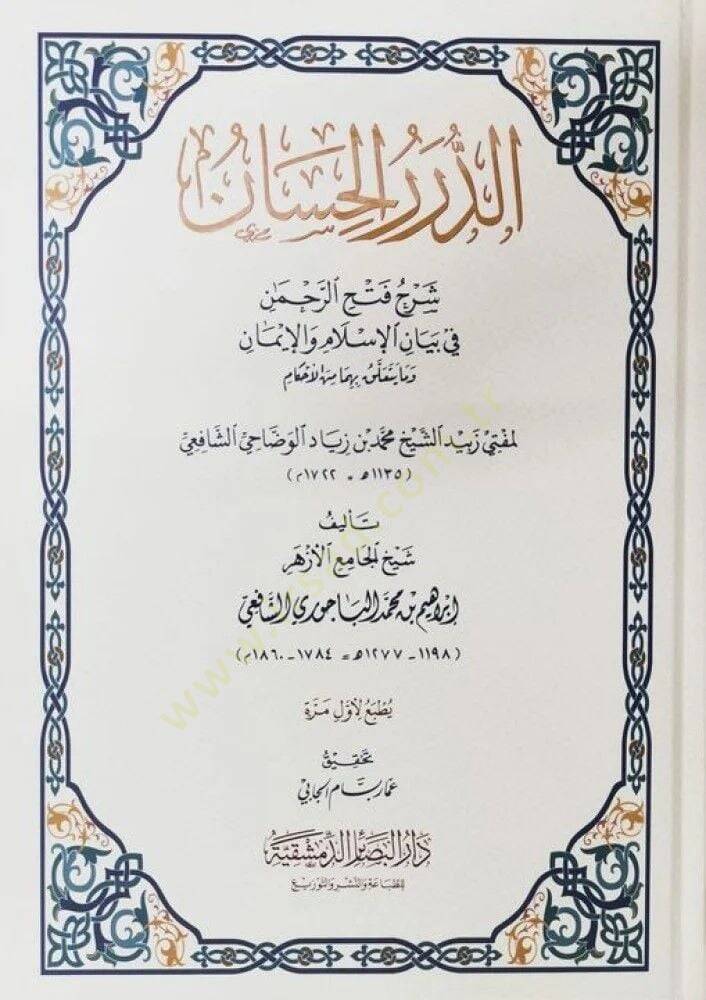 الدُّرَرُ الحِسَان
شَرْحُ فَتْحِ الرَّحْمٰنِ
فِي بَيَانِ الإِسْلَامِ وَالإِيمَانِ
وَمَا يَتَعَلَّقُ بِهِمَا مِنَ الأَحْكَامِ
لمفتي زبيد الشيخ محمد بن زياد الوضاحي الشافعي
(١١٣٥هـ = ١٧٢٢م)
تأليف
شيخ الجامع الأزهر
إبراهيم بن محمد الباجوري الشافعي
(١١٩٨ - ١٢٧٧هـ = ١٧٨٤ - ١٨٦٠م)
يُطْبَعُ لِأَوَّلِ مَرَّة
تحقيق
عمار بسام الجابي
دار البصائر الدمشقية
للطباعة والنشر والتوزيع